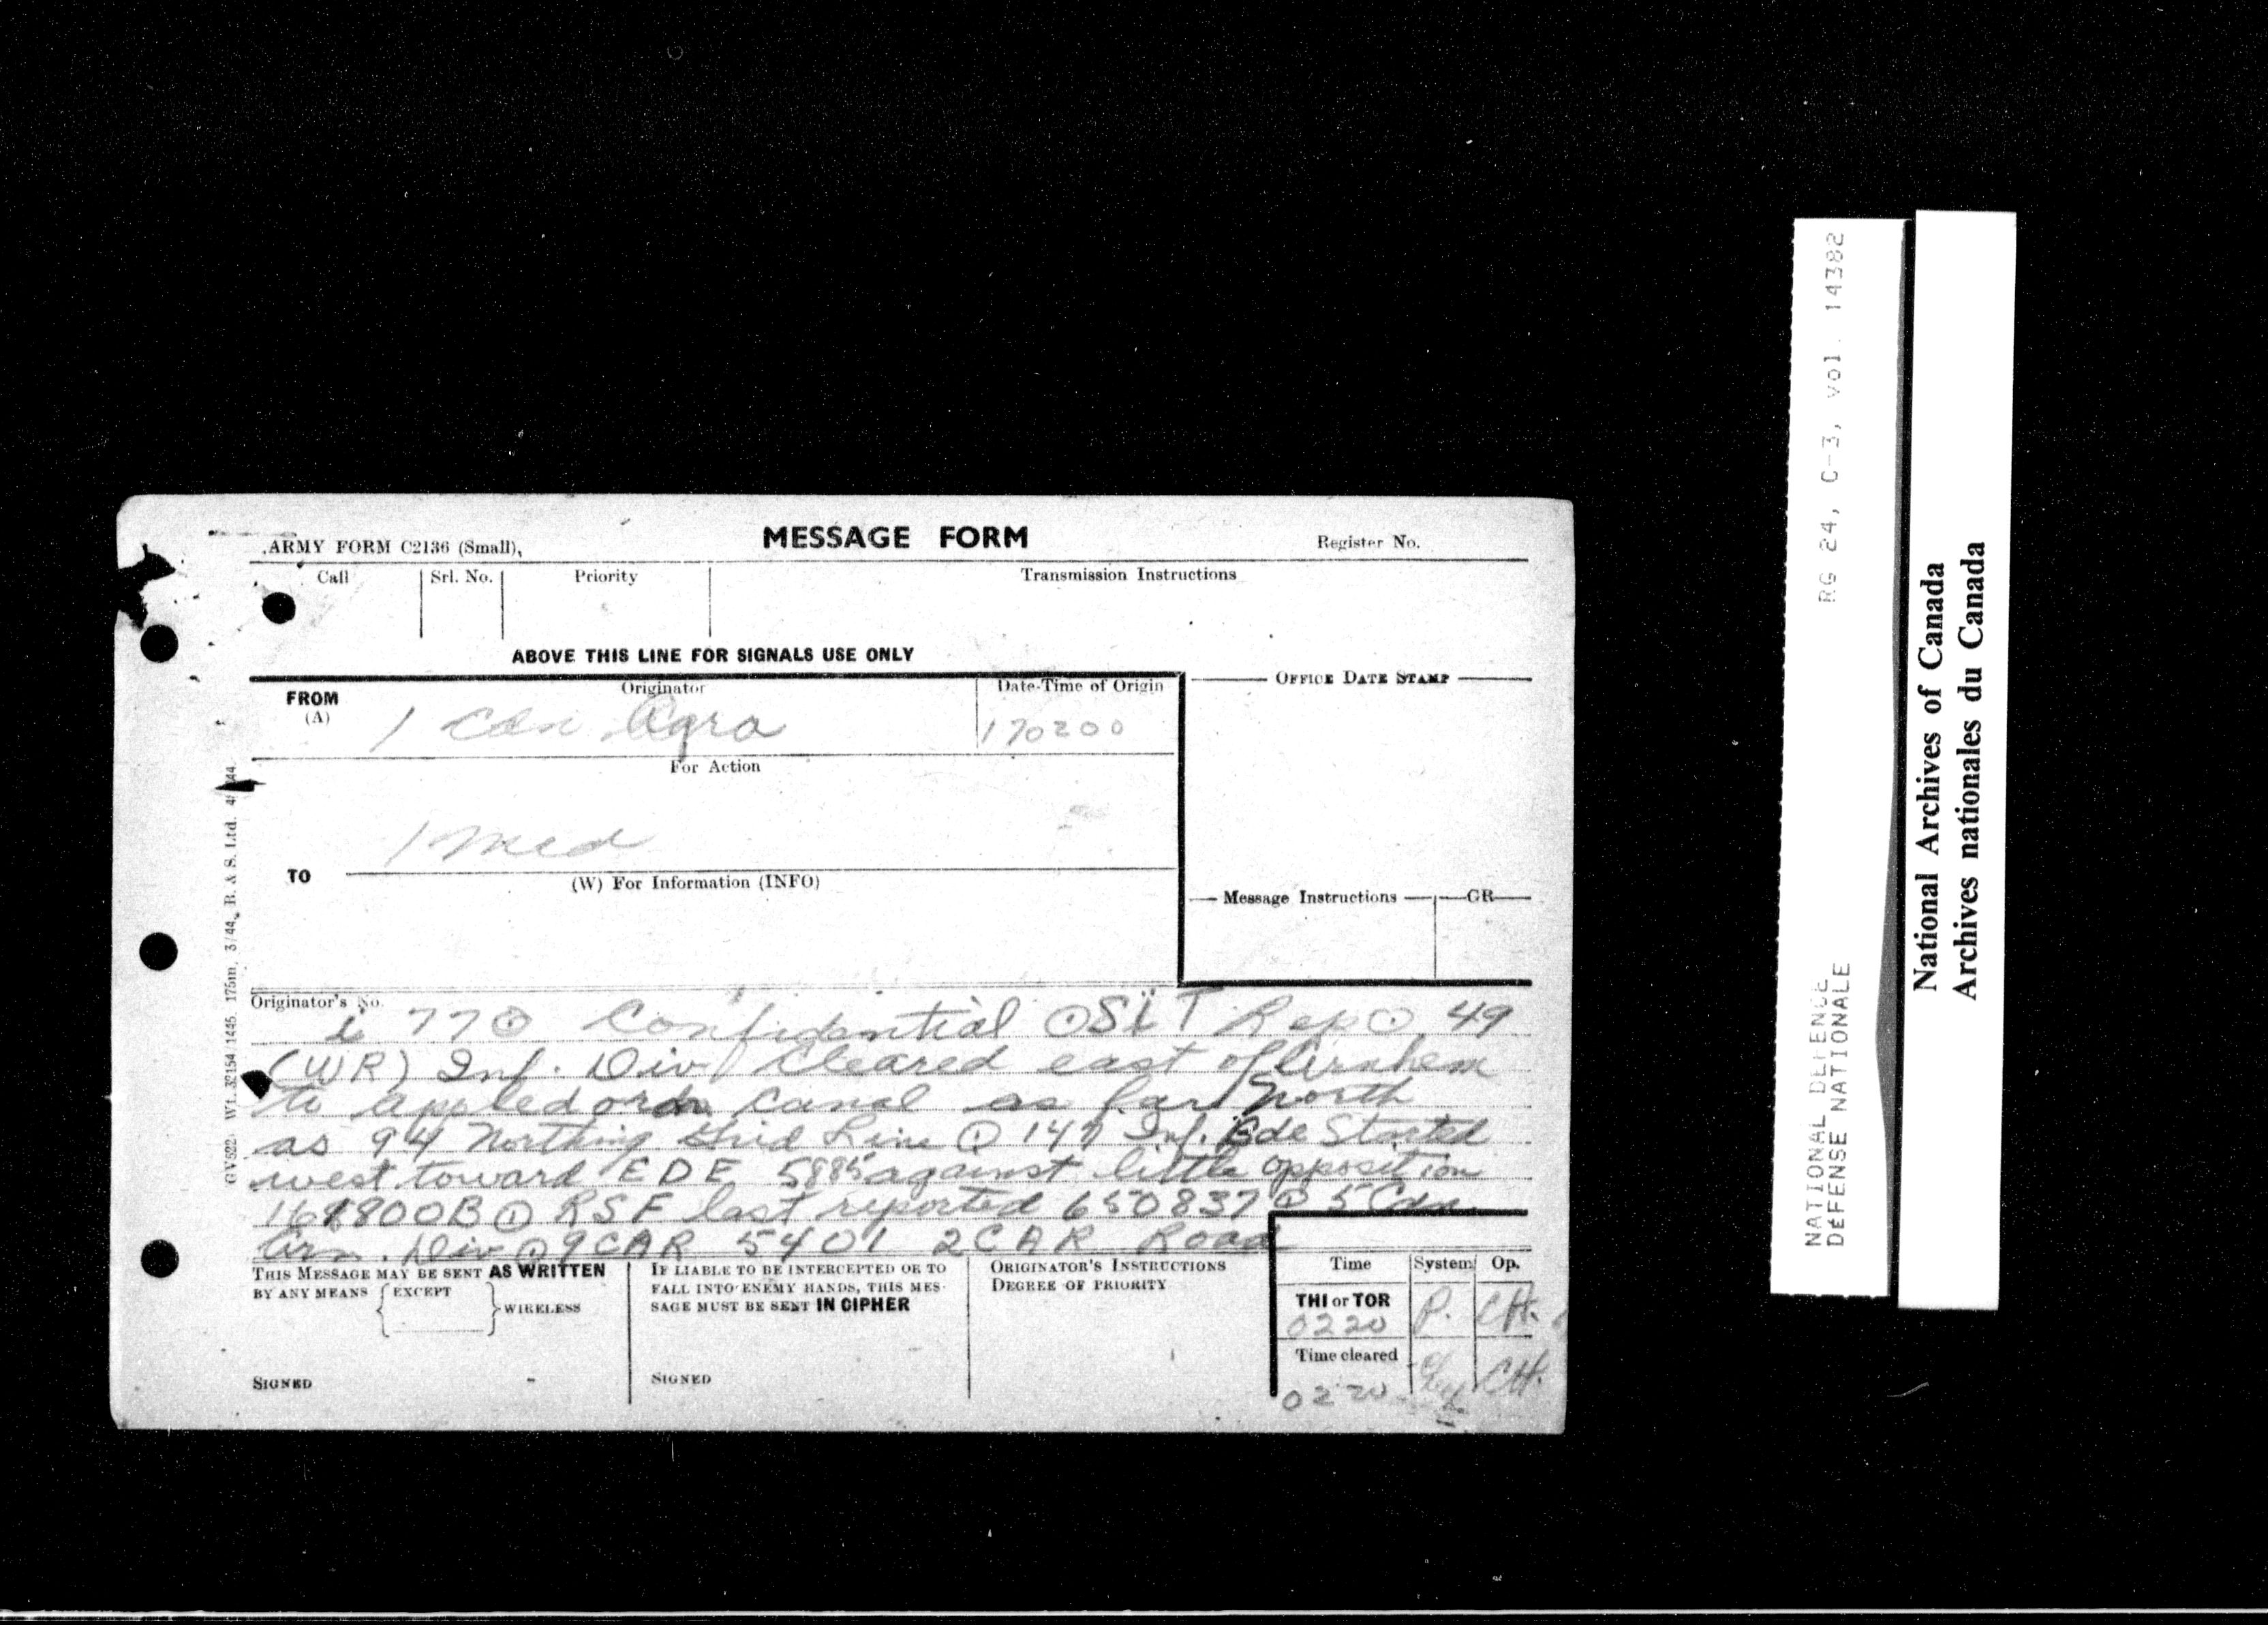 ARMY FORM C2136 (Small).
MESSAGE FORM
Register No.
Call
Srl. No.
Priority
Transmission Instructions
ABOVE THIS LINE FOR SIGNALS USE ONLY
FROM
(A)
Originator
Date-Time of Origin
OFFICE DATE STAMP
1 Cdn Agra
170200
For Action
1 Med
TO
(W) For Information (INFO)
Message Instructions
GR
Originator's No.
77 ⊙ Confidential ⊙ SiT Rep ⊙ 49
(WR) Inf. Div Cleared east of Arnhem
to canal as far North
as 94 Northing Grid Line ⊙ 147 Inf. Bde Started
west toward EDE 5885 against little opposition
161800B ⊙ RSF last reported 650837 ⊙ 5 Cdn
Arm. Div ⊙ 9 CAR 5401 2 CAR Road
THIS MESSAGE MAY BE SENT AS WRITTEN
BY ANY MEANS EXCEPT WIRELESS
SIGNED
IF LIABLE TO BE INTERCEPTED OR TO
FALL INTO ENEMY HANDS, THIS MES-
SAGE MUST BE SENT IN CIPHER
SIGNED
ORIGINATOR'S INSTRUCTIONS
DEGREE OF PRIORITY
Time
System
Op.
THI or TOR
0220
P.
CH.
Time cleared
0220
CH.
GV522 Wt. 32154/1445 175m. 3/44. B. & S. Ltd.
RG 24, C-3, vol. 14382
NATIONAL DEFENCE
DÉFENSE NATIONALE
National Archives of Canada
Archives nationales du Canada